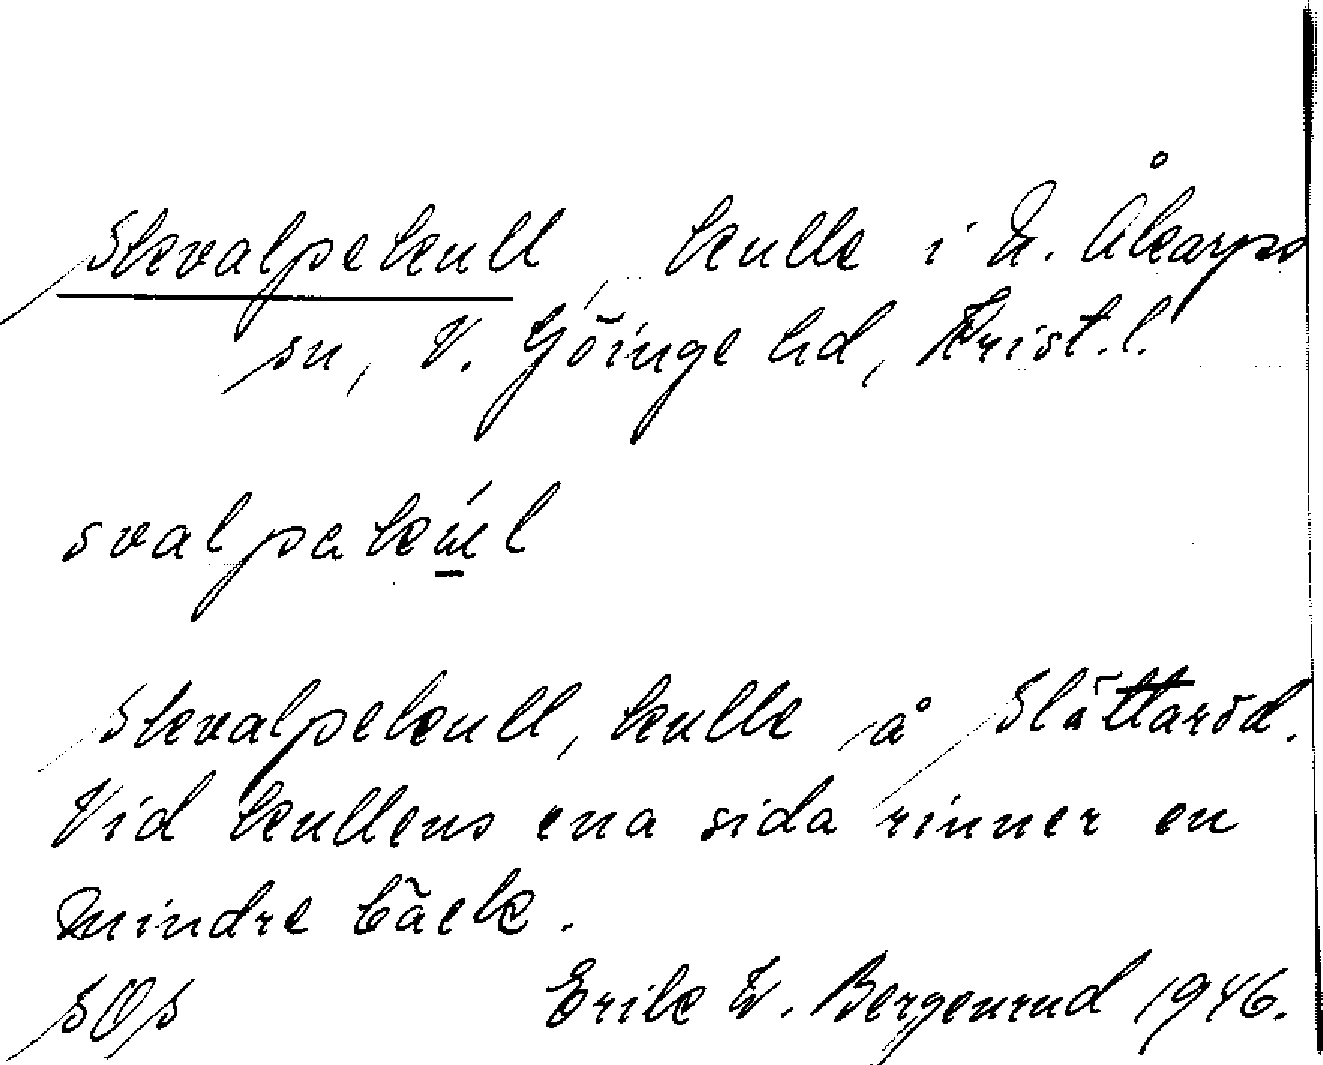 Skvalpekull, kulle i N. Åkarps
sn, V. Göinge hd, Krist. l.
svalpekúl
Skvalpekull, kulle på Slättaröd.
Vid kullens ena sida rinner en
mindre bäck.
SOS Erik W. Bergenrud 1946.